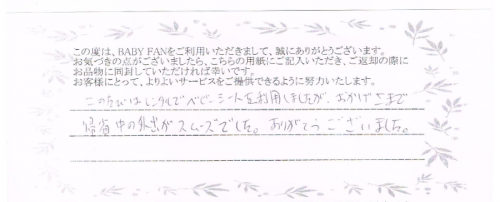 この度は、BABY FANをご利用いただきまして、誠にありがとうございます。
お気づきの点がございましたら、こちらの用紙にご記入いただき、ご返却の際に
お品物に同封していただければ幸いです。
お客様にとって、よりよいサービスをご提供できるように努力いたします。
このたびはレンタルでベビーシートを利用しましたが、おかげさまで
帰省中の外出がスムーズでした。ありがとうございました。